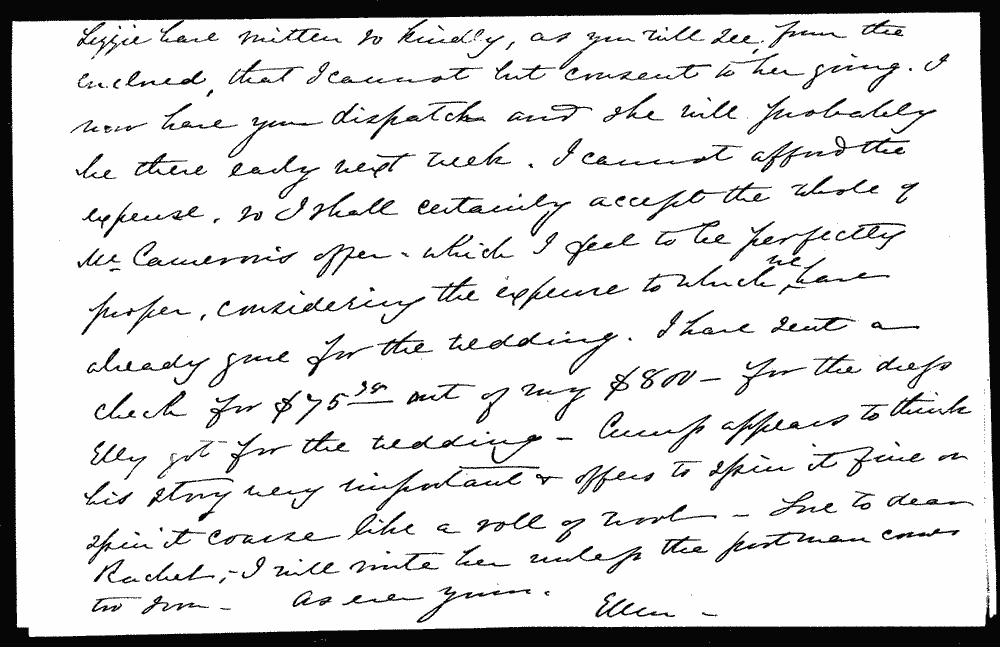 Lizzie have written so kindly, as you will see, from the
enclosed, that I cannot but consent to her going. I
now have your dispatch and she will probably
be there early next week. I cannot afford the
expense, so I shall certainly accept the whole of
Mr Cameron's offer - which I feel to be perfectly
proper, considering the expense to which we have
already gone for the wedding. I have sent a
check for $75 30 out of my $800 - for the dress
Elly got for the wedding - Cump appears to think
his story very important & offers to spin it fine or
spin it coarse like a roll of wool - Love to dear
Rachel, - I will write her unless the postman comes
too soon - As ever yours.
Ellen -